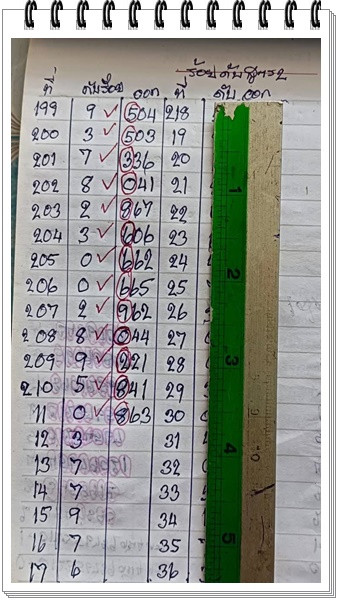 ร้อยดับสูตร 2
ที่ ดับร้อย ออก ที่ ดับ ออก
199 9 ✓ 504 218
200 3 ✓ 503 19
201 7 ✓ 336 20
202 8 ✓ 041 21
203 2 ✓ 867 22
204 3 ✓ 606 23
205 0 ✓ 662 24
206 0 ✓ 665 25
207 2 ✓ 962 26
208 8 ✓ 044 27
209 9 ✓ 221 28
210 5 ✓ 841 29
11 0 ✓ 863 30
12 3 31
13 7 32
14 7 33
15 9 34
16 7 35
17 6 36
1
2
3
4
5
9
10